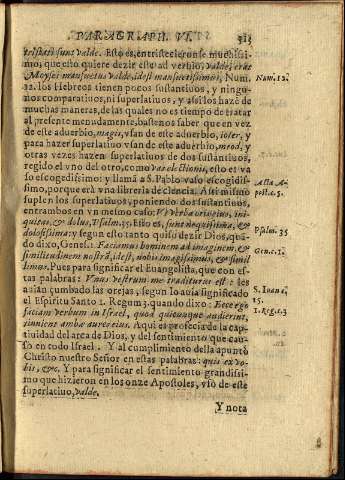 PARAGRAPH. VI. 513
tristati sunt valde. Esto es, entristecieronse muchissi-
mo; que esto quiere dezir este adverbio, valde, erat
Moyses mansuetus valde, idest mansuetissimus, Num. Num. 12.
12. los Hebreos tienen pocos sustantiuos, y ningu-
nos comparatiuos, ni superlatiuos, y assi los hazẽ de
muchas maneras, de las quales no es tiempo de tratar
al presente menudamente, bastenos saber que en vez
de este aduerbio, magis, vsan de este aduerbio, ioser, y
para hazer superlatiuo vsan de este aduerbio, meod, y
otras vezes hazen superlatiuos de dos sustantiuos,
regido el vno del otro, como vas electionis, esto es va
so escogidissimo; y llamã a S. Pablo vaso escogidis-
simo, porque erà vna libreria de ciencia. Assi mismo Acta A-
suplen los superlatiuos, poniendo dos sustantiuos, post. c. 5.
entrambos en vn mesmo caso: Vt verba oris eius, ini-
quitas, & dolus, Psalm. 35. Esto es, sunt nequissima, & Psalm. 35
dolosissima: y segun esto tanto quiso dezir Dios, quã-
do dixo, Genes. 1. Faciamus hominem ad imaginem, & Gen. c. 1.
similitudinem nostrã, idest, nobis imagissimus, & simil
limus. Pues para significar el Euangelista, que con es-
tas palabras: Vnus vestrum me traditurus est: les
auian çumbado las orejas, segun lo auia significado S. Ioan c.
el Espiritu Santo 1. Regum 3. quando dixo: Ecce ego 15.
faciam verbum in Israel, quod quicunque audierint, 1. Reg. c. 3
tinnient ambæ aures eius. Aqui es profecia de la cap-
tiuidad del arca de Dios, y del sentimiento que cau-
sò en todo Israel. Y al cumplimiento della apuntò
Christo nuestro Señor en estas palabras: quis ex vo-
bis, &c. Y para significar el sentimiento grandissi-
mo que hizieron en los onze Apostoles, vsò de este
superlatiuo, valde.
Y nota